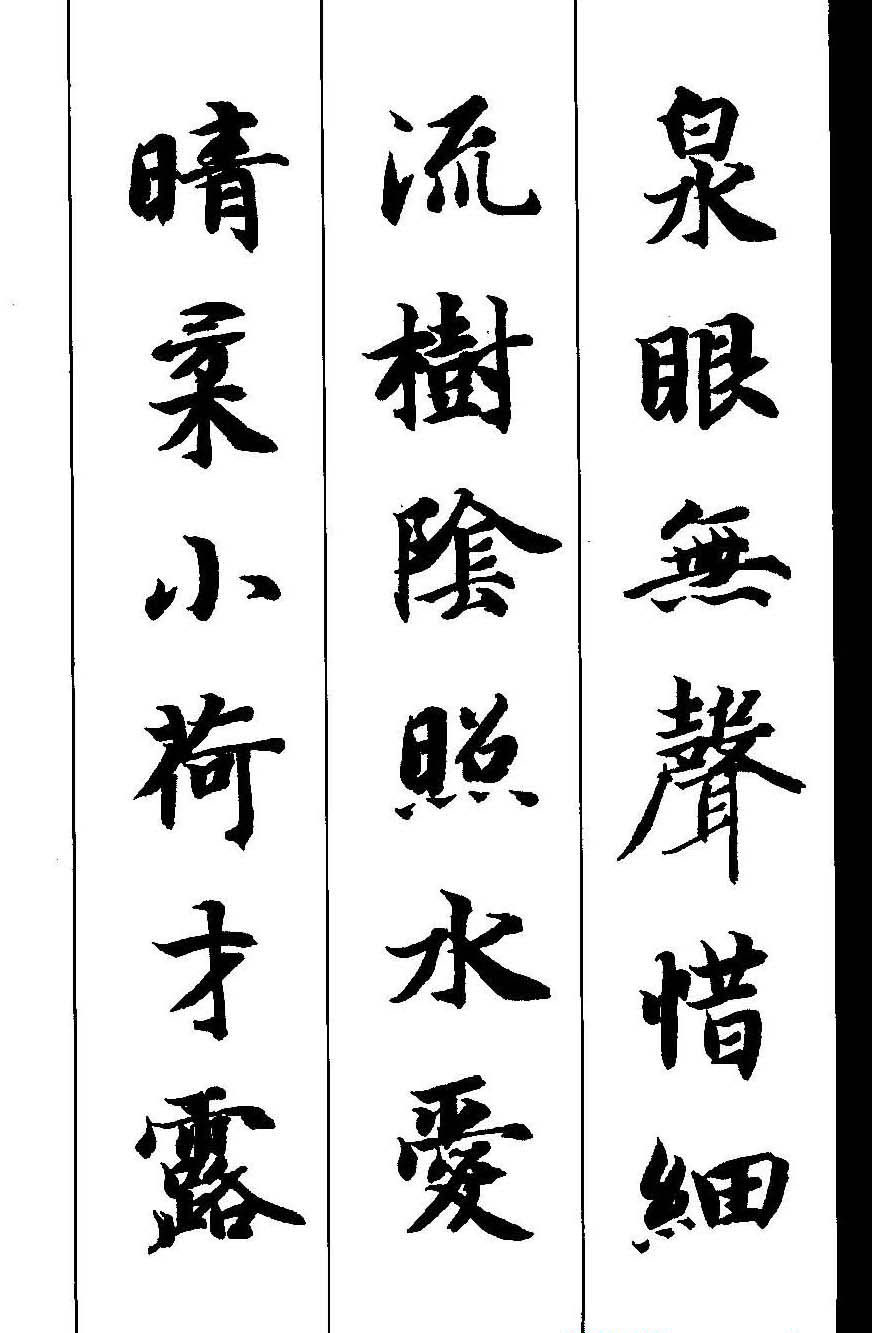 泉眼無聲惜細
流樹陰照水愛
晴柔小荷才露